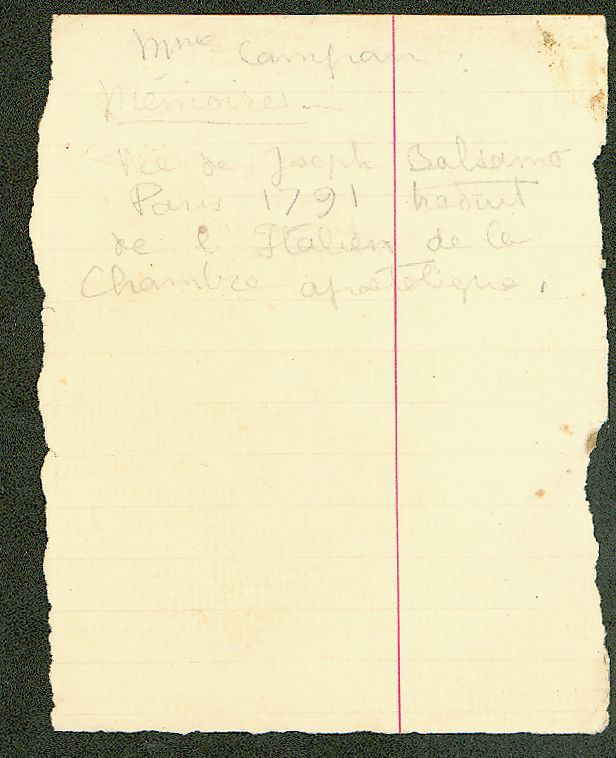 Mme Campan :
Mémoires —
Vie de Joseph Balsamo
Paris 1791 traduit
de l'Italien de la
Chambre apostolique.